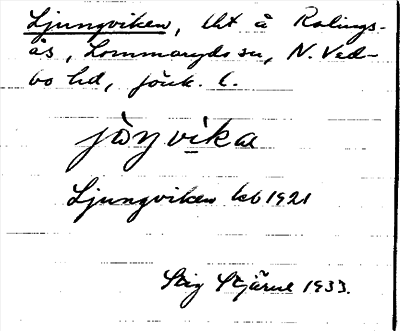 Ljungviken, lht å Ralings-
ås, Lommaryds sn, N. Ved-
bo hd, Jönk. l.
jåŋvika
Ljungviken kb 1921
Stig Stjärne 1933.